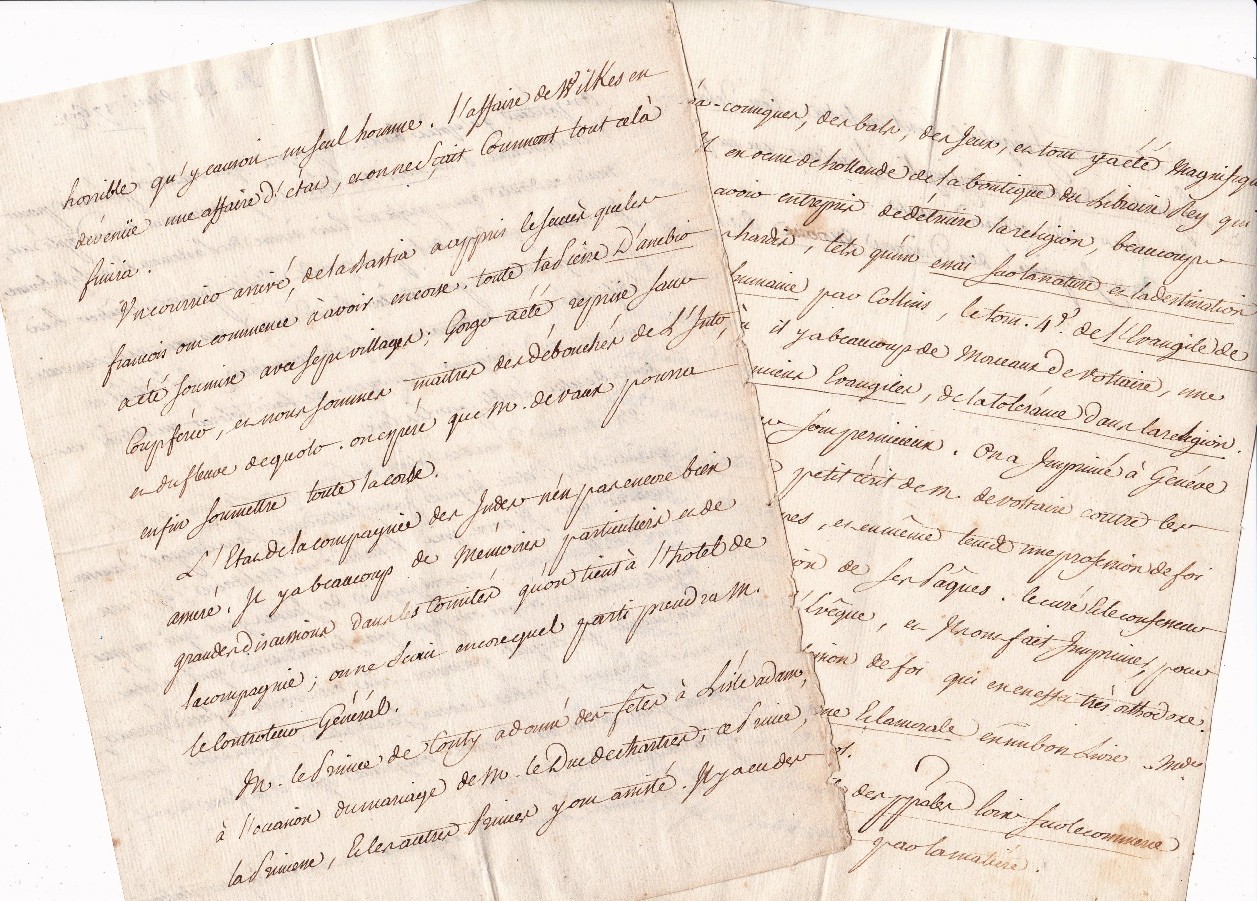 horrible qu'y causoit un seul homme. l'affaire de Wilkes est
dévenüe une affaire d'état, et on ne sçait Comment tout celà
finira.
Un courrier arrivé, de la Bastia a appris le succès que les
francois ont commencé à avoir encore. toute la Pieve D'ambio
a été soumise avec sept villages; Gorgo a été reprise sans
Coup férir, et nous sommes maîtres des débouchés de L'Inter,
et du fleuve de guolo. on espére que M. de vaux pourra
enfin soumettre toute la corse.
L'Etat de la compagnie des Indes n'est pas encore bien
assuré. Il y a beaucoup de Mémoires particuliers et de
grandes discussions dans les Comités qu'on tient à l'hotel de
la compagnie; on ne sçait encore quel parti prendra M.
le Controleur Général.
M. le Prince de Conty a donné des fêtes à Lisle adam,
à l'occasion du mariage de M. le Duc de chartres; ce Prince,
la Princesse, et les autres Princes y ont assisté. Il y a eu des
a-comiques, des bals, des Jeux, en tout y a été Magnifique
Il est venu de hollande de la boutique du Libraire Rey qui
avoit entrepris de détruire la religion, beaucoup
hardis, tels qu'un essai sur la nature et la destination
humaine par Collins, le tom. 4e. de l'Evangile de
il y a beaucoup de Morceaux de voltaire, une
Evangiles, de la tolérance dans la religion.
sont pernicieux. On a Imprimé à Genéve
petit écrit de m. de voltaire contre les
et en même tems une profession de foi
ion de ses Pâques. le curé et le confesseur
Evêque, et Ils ont fait Imprimer, pour
de foi qui est en effet très orthodoxe.
et la morale est un bon Livre
des ppales loix sur le commerce
par la matière.